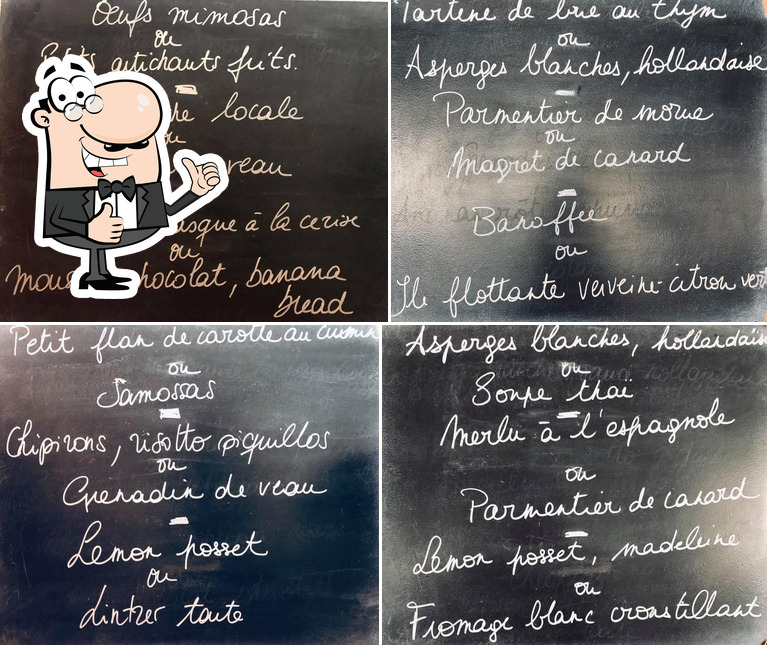 Œufs mimosas
ou
artichauts frits.
locale
veau
à la cerise
ou
hocolat, banana
bread
Tartine de brie au thym
ou
Asperges blanches, hollandaise
Parmentier de morue
ou
Magret de canard
Banoffee
ou
Ile flottante verveine-citron vert
Petit flan de carotte au cumin
ou
Samossas
Chipirons, risotto piquillos
ou
Grenadin de veau
Lemon posset
ou
Lintzer taute
Asperges blanches, hollandaise
ou
Soupe thaï
Merlu à l'espagnole
ou
Parmentier de canard
Lemon posset, madeleine
ou
Fromage blanc croustillant